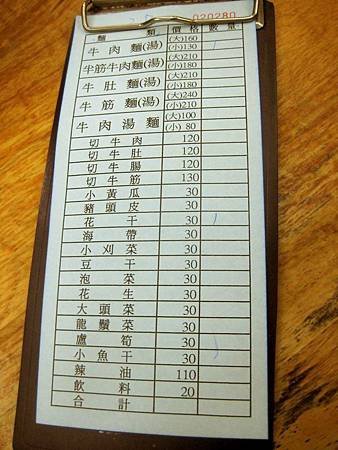 020280
麵類 價格 數量
牛肉麵(湯) (大)160 (小)130
半筋牛肉麵(湯) (大)210 (小)180
牛肚麵(湯) (大)210 (小)180
牛筋麵(湯) (大)240 (小)210
牛肉湯麵 (大)100 (小) 80
切牛肉 120
切牛肚 120
切牛腸 120
切牛筋 130
小黃瓜 30
豬頭皮 30
花干 30
海帶 30
小刈菜 30
豆干 30
泡菜 30
花生 30
大頭菜 30
龍鬚菜 30
盧筍 30
小魚干 30
辣油 110
飲料 20
合計